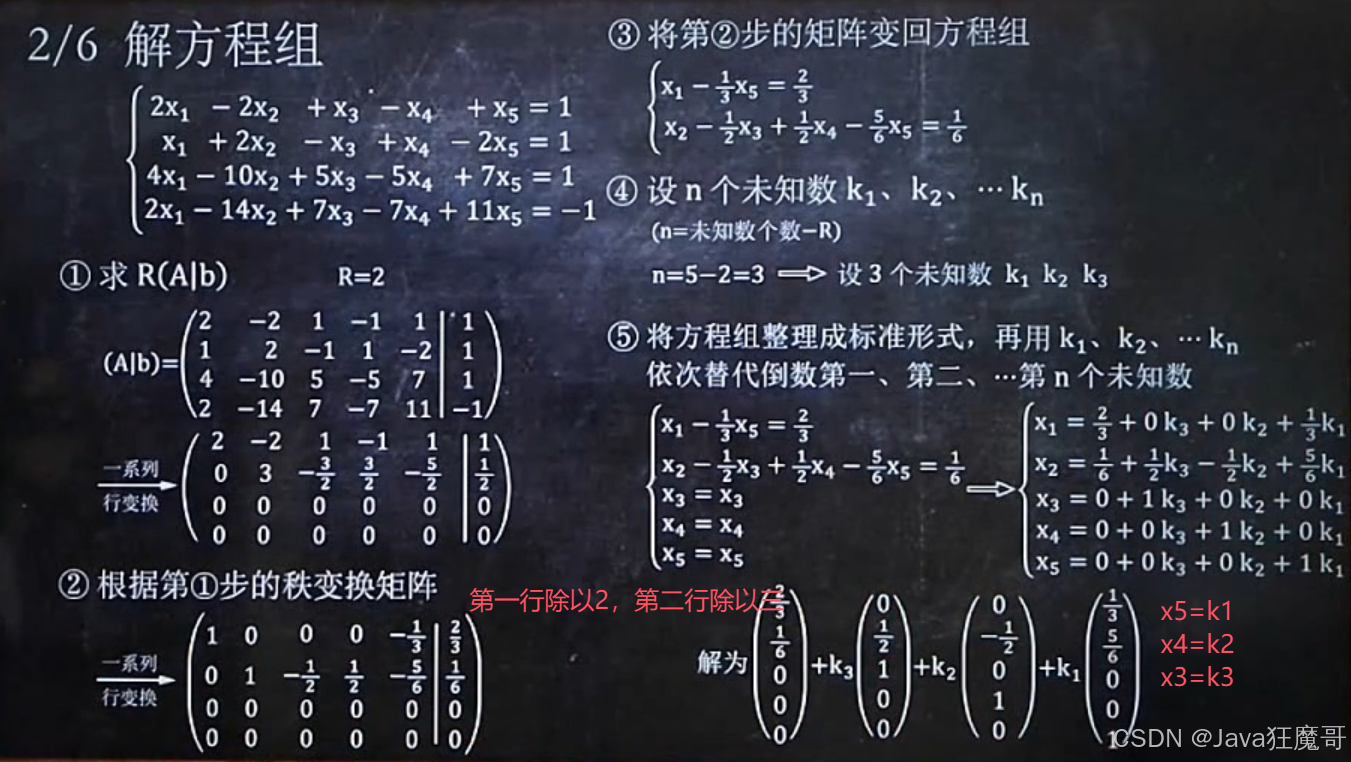 2/6 解方程组
2x₁ − 2x₂ + x₃ − x₄ + x₅ = 1
x₁ + 2x₂ − x₃ + x₄ − 2x₅ = 1
4x₁ − 10x₂ + 5x₃ − 5x₄ + 7x₅ = 1
2x₁ − 14x₂ + 7x₃ − 7x₄ + 11x₅ = −1
① 求 R(A|b) R=2
(A|b)=
2 −2 1 −1 1 | 1
1 2 −1 1 −2 | 1
4 −10 5 −5 7 | 1
2 −14 7 −7 11 | −1
一系列
行变换
2 −2 1 −1 1 | 1
0 3 −3/2 3/2 −5/2 | 1/2
0 0 0 0 0 | 0
0 0 0 0 0 | 0
② 根据第①步的秩变换矩阵
第一行除以2，第二行除以三
一系列
行变换
1 0 0 0 −1/3 | 2/3
0 1 −1/2 1/2 −5/6 | 1/6
0 0 0 0 0 | 0
0 0 0 0 0 | 0
③ 将第②步的矩阵变回方程组
x₁ − 1/3x₅ = 2/3
x₂ − 1/2x₃ + 1/2x₄ − 5/6x₅ = 1/6
④ 设 n 个未知数 k₁、k₂、⋯kₙ
(n=未知数个数−R)
n=5−2=3 ⟹ 设 3 个未知数 k₁ k₂ k₃
⑤ 将方程组整理成标准形式，再用 k₁、k₂、⋯kₙ
依次替代倒数第一、第二、⋯第 n 个未知数
x₁ − 1/3x₅ = 2/3
x₂ − 1/2x₃ + 1/2x₄ − 5/6x₅ = 1/6
x₃ = x₃
x₄ = x₄
x₅ = x₅
⟹
x₁ = 2/3 + 0 k₃ + 0 k₂ + 1/3k₁
x₂ = 1/6 + 1/2k₃ − 1/2k₂ + 5/6k₁
x₃ = 0 + 1 k₃ + 0 k₂ + 0 k₁
x₄ = 0 + 0 k₃ + 1 k₂ + 0 k₁
x₅ = 0 + 0 k₃ + 0 k₂ + 1 k₁
解为 (2/3 1/6 0 0 0) +k₃ (0 1/2 1 0 0) +k₂ (0 −1/2 0 1 0) +k₁ (1/3 5/6 0 0 1)
x5=k1
x4=k2
x3=k3
CSDN @Java狂魔哥